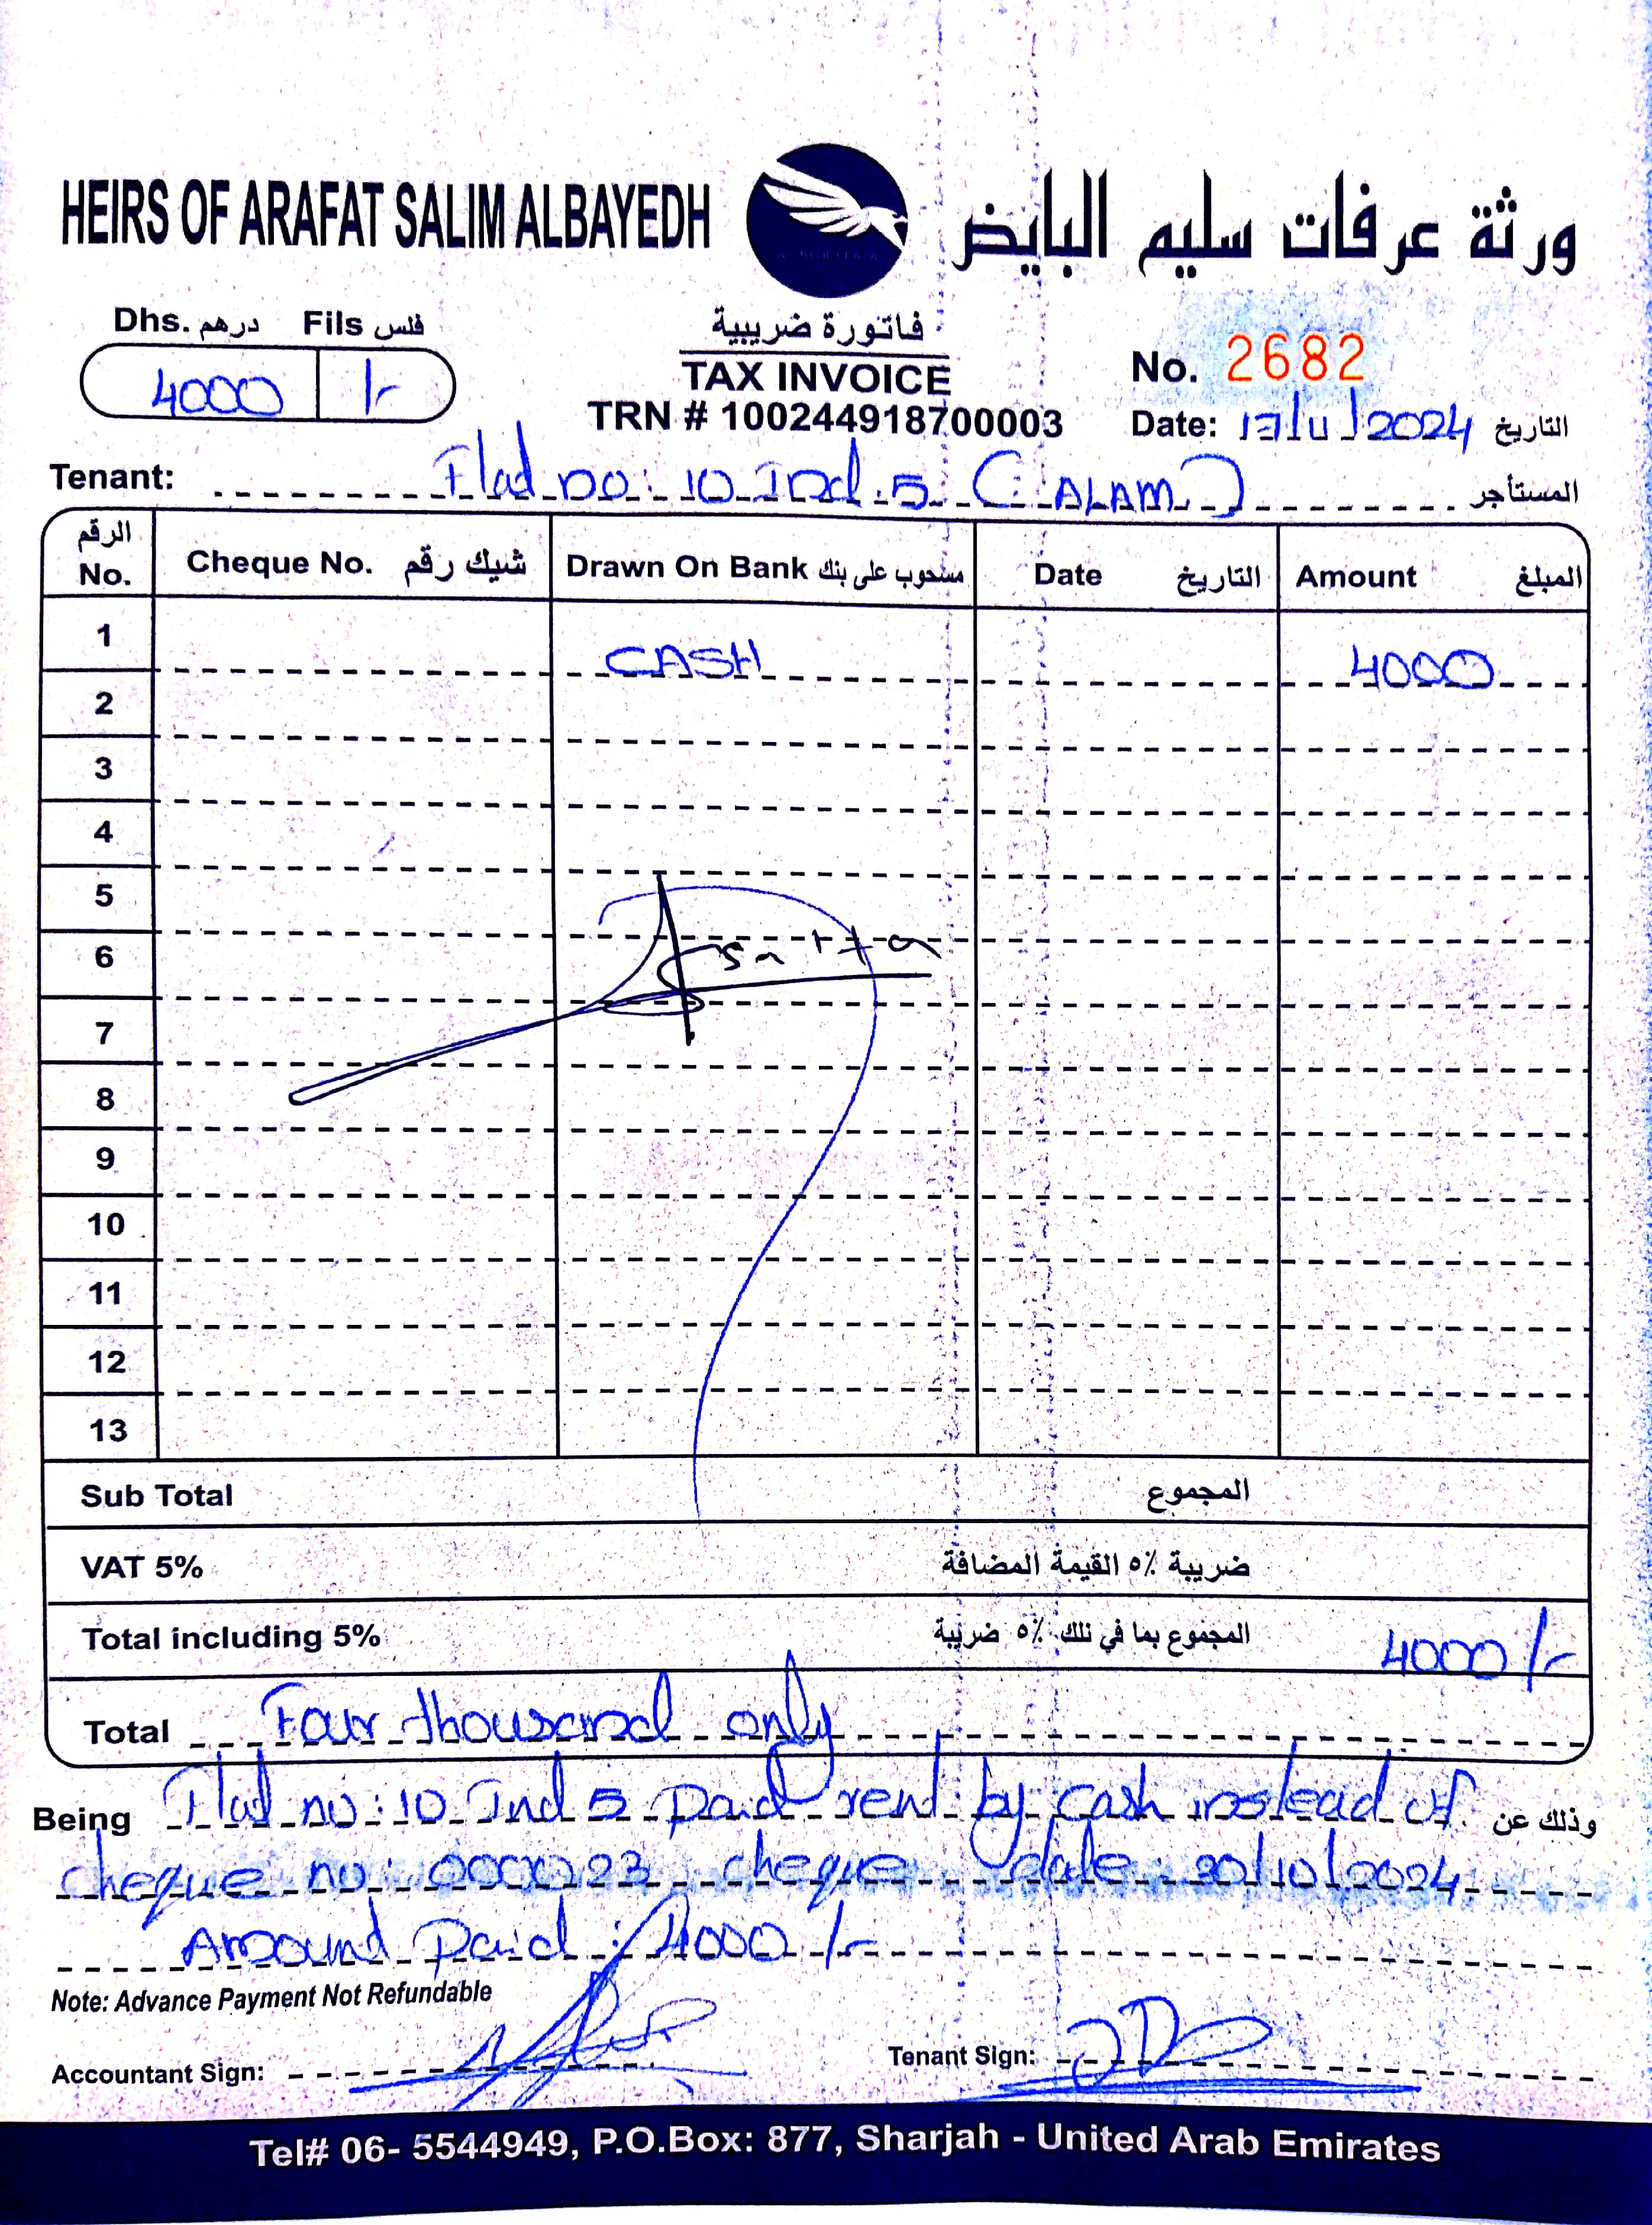 HEIRS OF ARAFAT SALIM ALBAYEDH ورثة عرفات سليم البايض
Dhs. درهم Fils فلس
4000 /-
فاتورة ضريبية
TAX INVOICE
TRN # 100244918700003
No. 2682
Date: 17/11/2024 التاريخ
Tenant: Flat no: 10 Ind 5 (ALAM) المستأجر
الرقم No. Cheque No. شيك رقم Drawn On Bank مسحوب على بنك Date التاريخ Amount المبلغ
1 CASH 4000
2
3
4
5
6
7
8
9
10
11
12
13
Sub Total المجموع
VAT 5% ضريبة ٥٪ القيمة المضافة
Total including 5% المجموع بما في ذلك ٥٪ ضريبة 4000/-
Total Four thousand only
Being Flat no: 10 Ind 5 Paid rent by cash instead of وذلك عن
cheque no: 000023 cheque date: 30/10/2024
Amound Paid: 4000/-
Note: Advance Payment Not Refundable
Accountant Sign: Tenant Sign:
Tel# 06- 5544949, P.O.Box: 877, Sharjah - United Arab Emirates